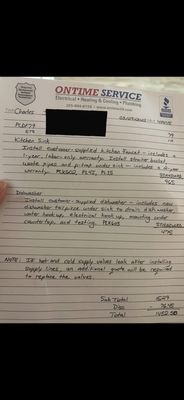 ONTIME SERVICE
Electrical • Heating & Cooling • Plumbing
www.ontimealabama.com
BBB
Charles
PLD79
79
Kitchen Sink
Install customer-supplied kitchen faucet - includes a
1-year, labor-only warranty. Install strainer basket,
waste pipes and p-trap under sink - includes a 2-year
warranty. PLK502, PL42, PL12
STANDARD
965
Dishwasher
Install customer-supplied dishwasher - includes new
dishwasher tailpiece under sink to drain dishwasher,
water hook up, electrical hook up, mounting under
countertop, and testing. PLK603
STANDARD
475
NOTE: If hot and cold supply valves leak after installing
supply lines, an additional quote will be required
to replace the valves.
Sub Total 1529
Disc 76.45
Total 1452.55